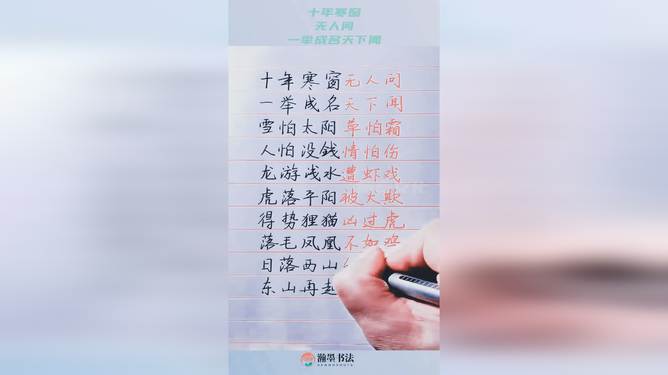 十年寒窗
无人问
一举成名天下闻
十年寒窗无人问
一举成名天下闻
雪怕太阳草怕霜
人怕没銭情怕伤
龙游浅水遭虾戏
虎落平阳被犬欺
得势狸猫凶过虎
落毛凤凰不如鸡
日落西山
东山再起
瀚墨书法